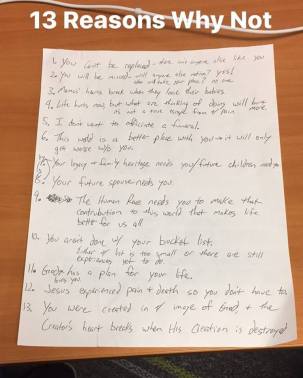 13 Reasons Why Not
1. You can't be replaced - there isn't anyone else like you
2. You will be missed - will anyone else notice? yes!
who will take your place? no one
3. Mamas' hearts break when they lose their babies.
4. Life hurts now, but what are thinking of doing will hurt more
it's not a true escape from pain
5. I don't want to officiate a funeral.
6. This world is a better place with you → it will only
get worse w/o you.
7. Your legacy + family heritage needs you/future children need you
8. Your future spouse needs you.
9. The Human Race needs you to make that
contribution to this world that makes life
better for us all
10. You aren't done w/ your bucket list.
Either it is too small or there are still
experiences yet to do.
11. God has a plan for your life.
12. Jesus experienced pain + death so you don't have to
13. You were created in image of God, + the
Creator's heart breaks when His Creation is destroyed